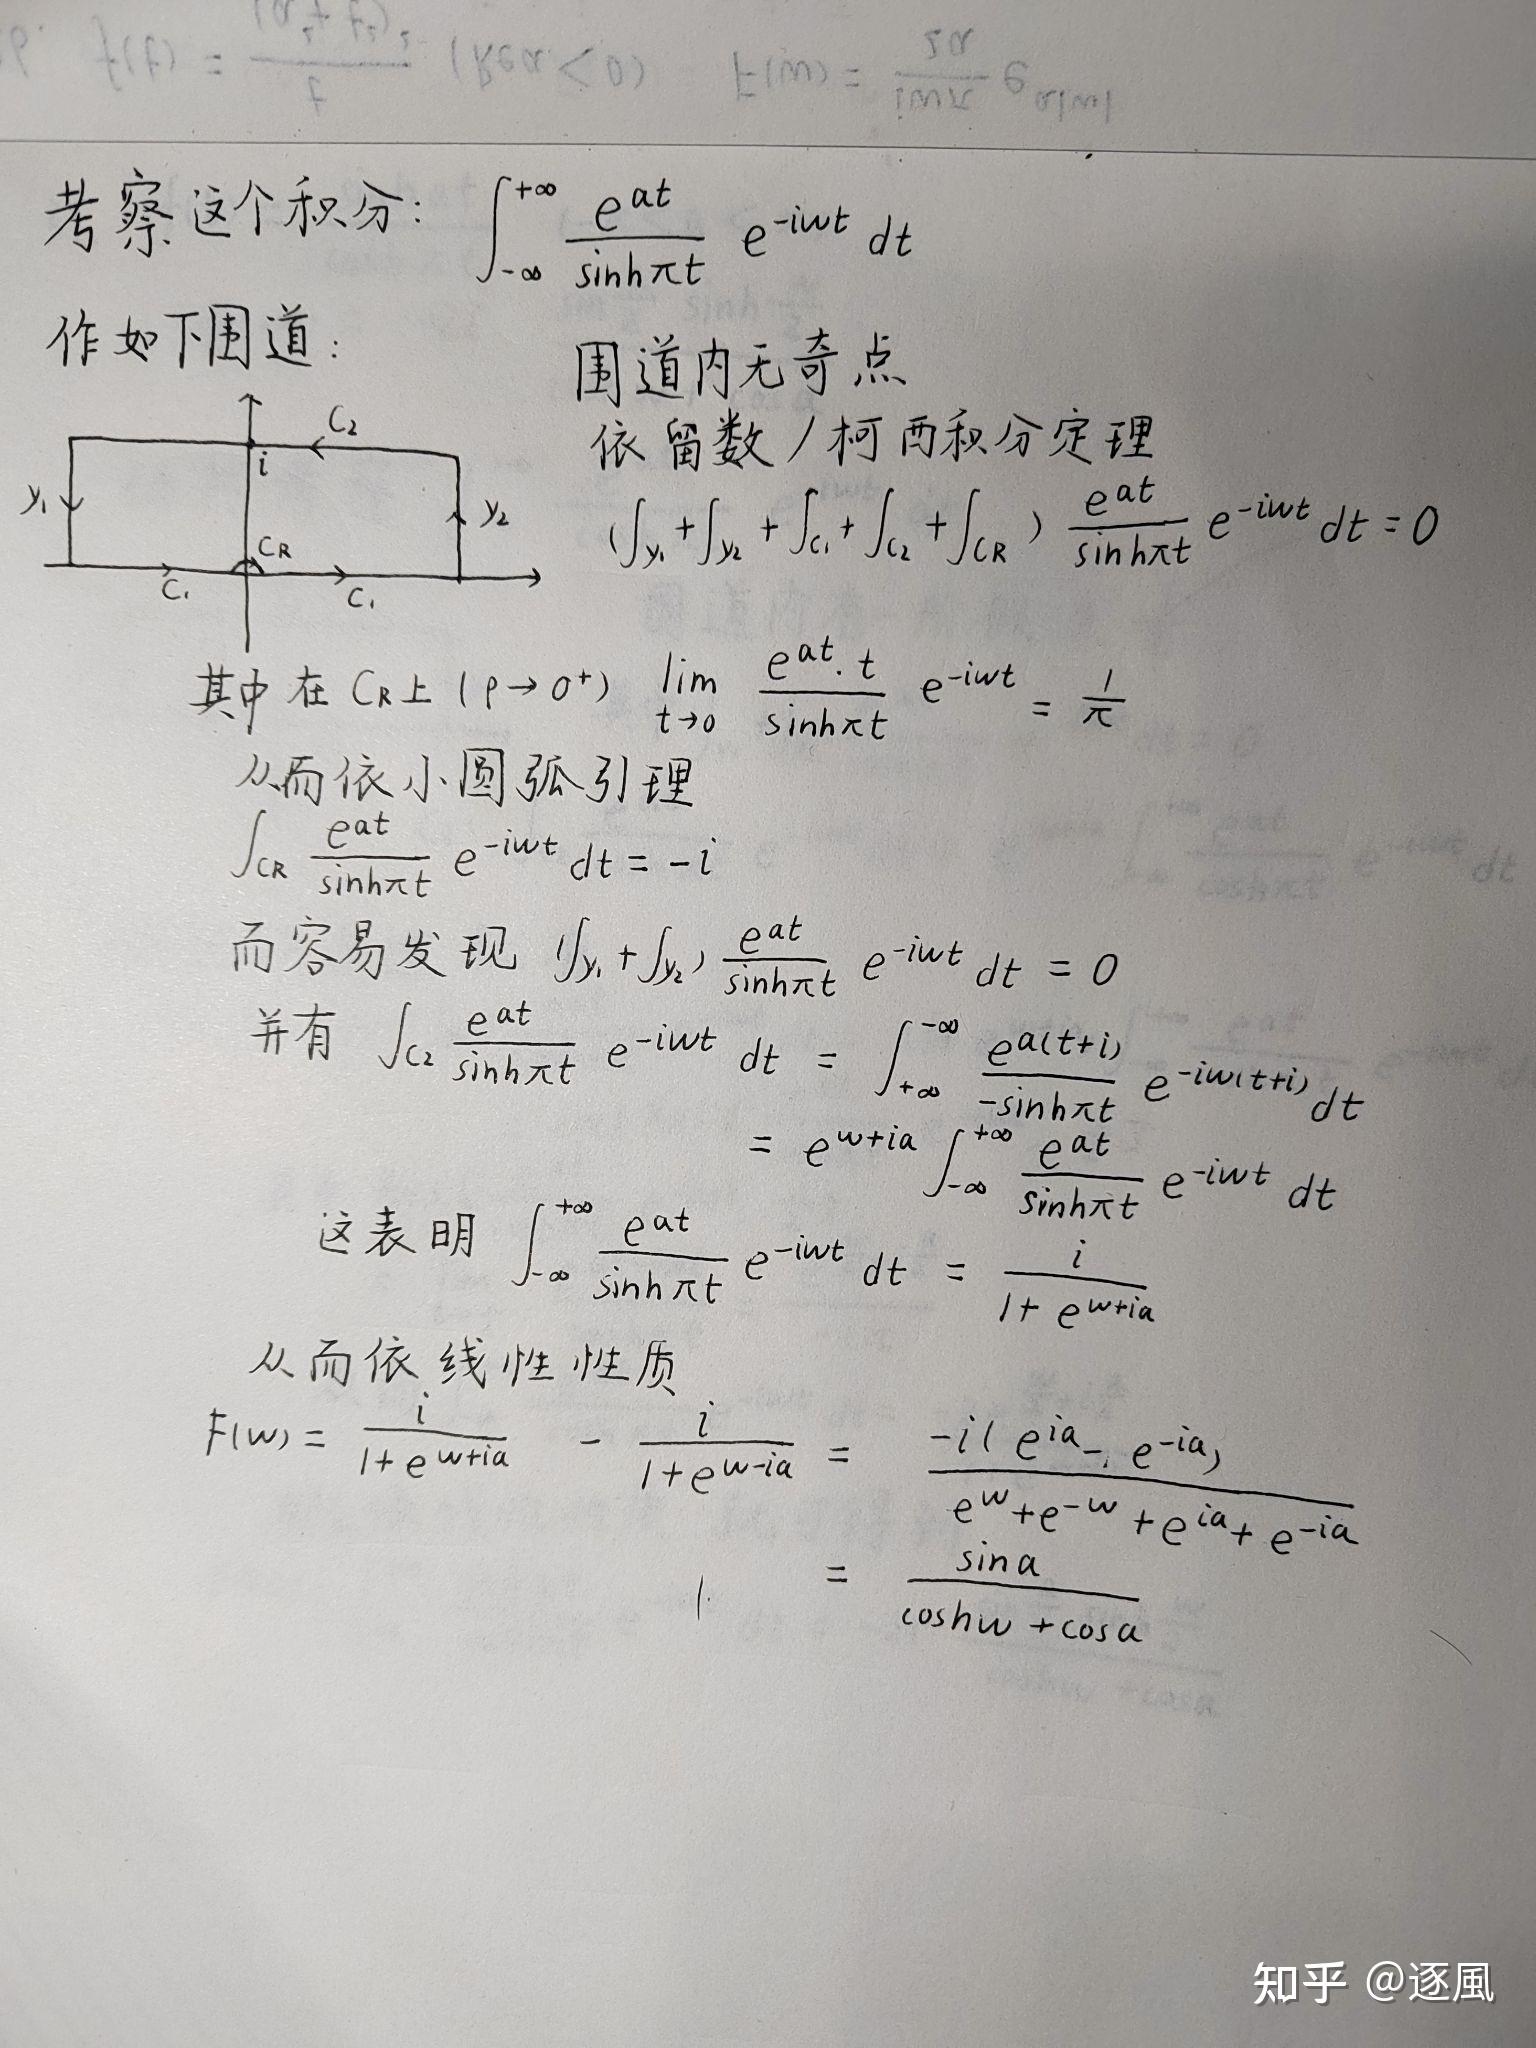 考察这个积分: ∫_{-∞}^{+∞} e^{at}/sinhπt e^{-iwt} dt
作如下围道:
围道内无奇点
依留数/柯西积分定理
C₂
i
γ₁
γ₂
C_R
C₁
C₁
(∫_{γ₁}+∫_{γ₂}+∫_{C₁}+∫_{C₂}+∫_{CR}) e^{at}/sinhπt e^{-iwt} dt = 0
其中在 C_R上 (ρ→0⁺) lim_{t→0} e^{at}·t/sinhπt e^{-iwt} = 1/π
从而依小圆弧引理
∫_{CR} e^{at}/sinhπt e^{-iwt} dt = -i
而容易发现 (∫_{γ₁}+∫_{γ₂}) e^{at}/sinhπt e^{-iwt} dt = 0
并有 ∫_{C₂} e^{at}/sinhπt e^{-iwt} dt = ∫_{+∞}^{-∞} e^{a(t+i)}/-sinhπt e^{-iw(t+i)} dt
= e^{w+ia} ∫_{-∞}^{+∞} e^{at}/sinhπt e^{-iwt} dt
这表明 ∫_{-∞}^{+∞} e^{at}/sinhπt e^{-iwt} dt = i/(1+e^{w+ia})
从而依线性性质
F(w) = i/(1+e^{w+ia}) - i/(1+e^{w-ia}) = -i(e^{ia}-e^{-ia})/(e^w+e^{-w}+e^{ia}+e^{-ia})
= sina/(coshw+cosa)
知乎 @逐風